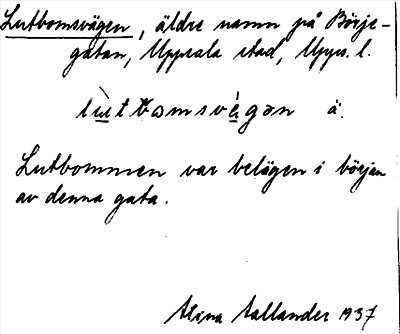 Lutbomsvägen, äldre namn på Börje-
gatan, Uppsala stad, Upps. l.
lu̇t bomsvä̀gən ä.
Lutbommen var belägen i början
av denna gata.
Stina Sallander 1937